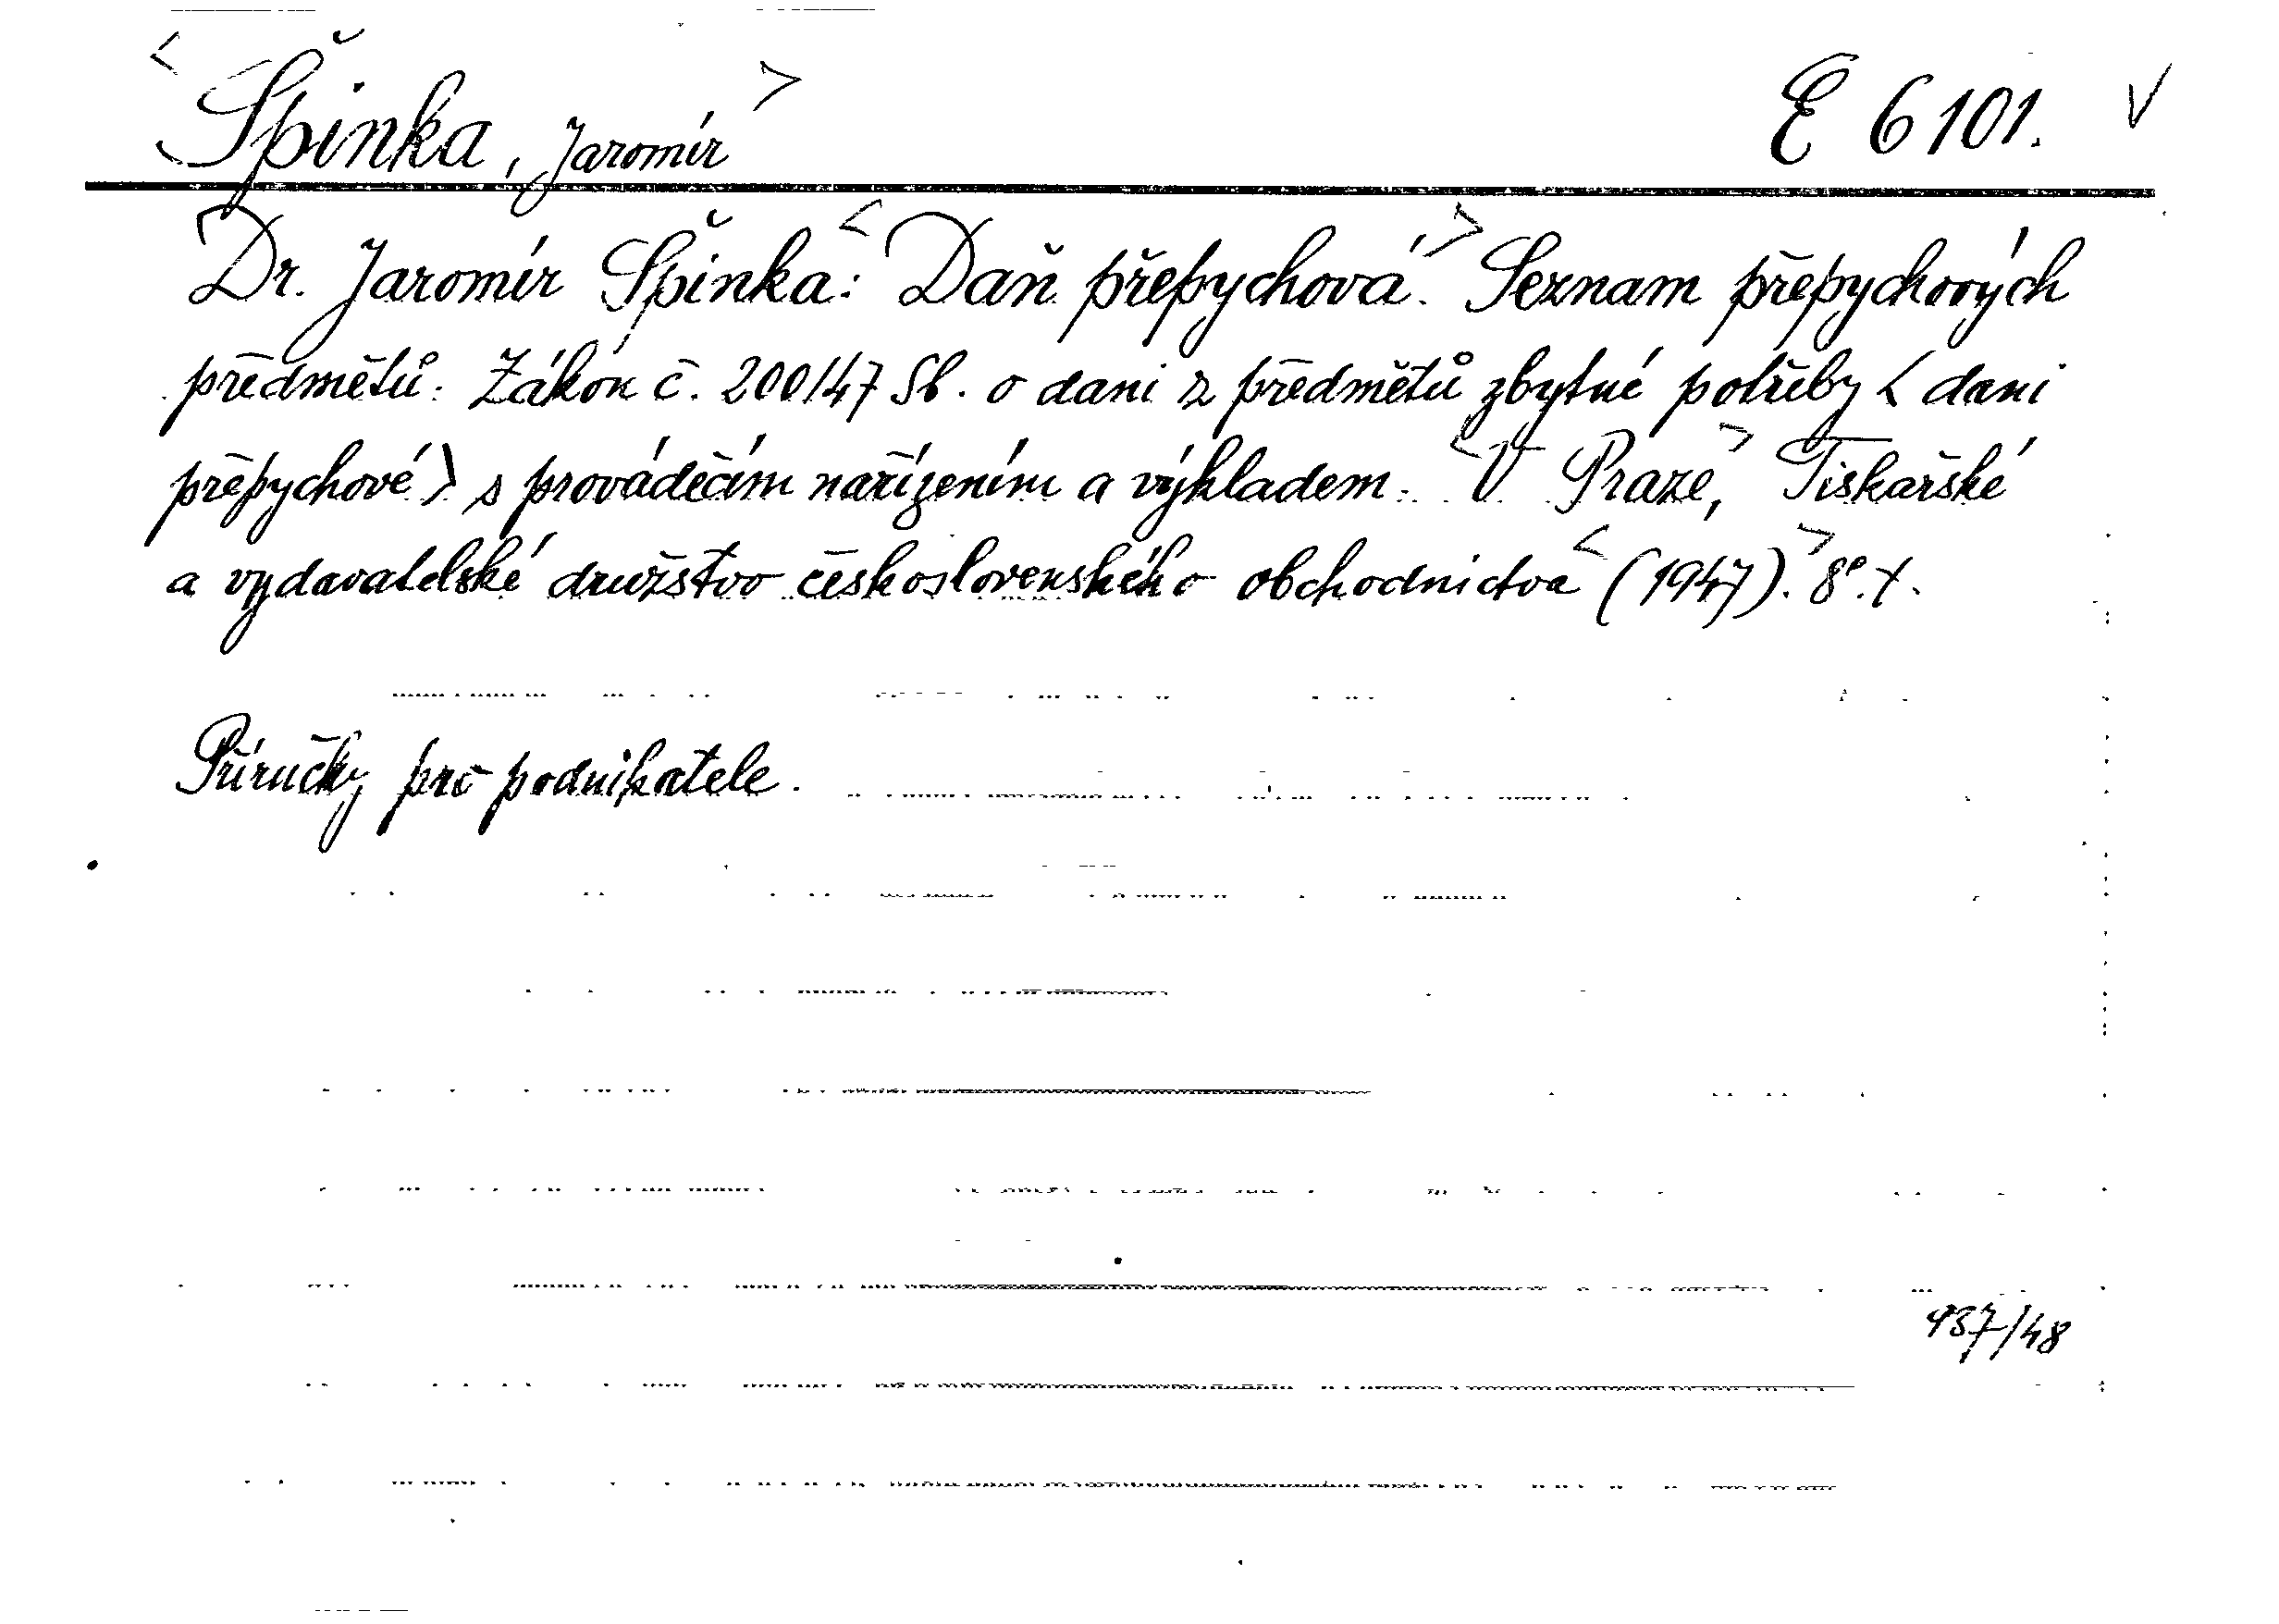 <Špinka, Jaromír> E 6101. V
Dr. Jaromír Špinka: <Daň přepychová.> Seznam přepychových
předmětů. Zákon č. 200/47 Sb. o dani z předmětů zbytné potřeby < dani
přepychové > s prováděcím nařízením a výkladem. <V Praze,> Tiskařské
a vydavatelské družstvo československého obchodnictva <(1947).> 8°.
Příručky pro podnikatele.
937/48